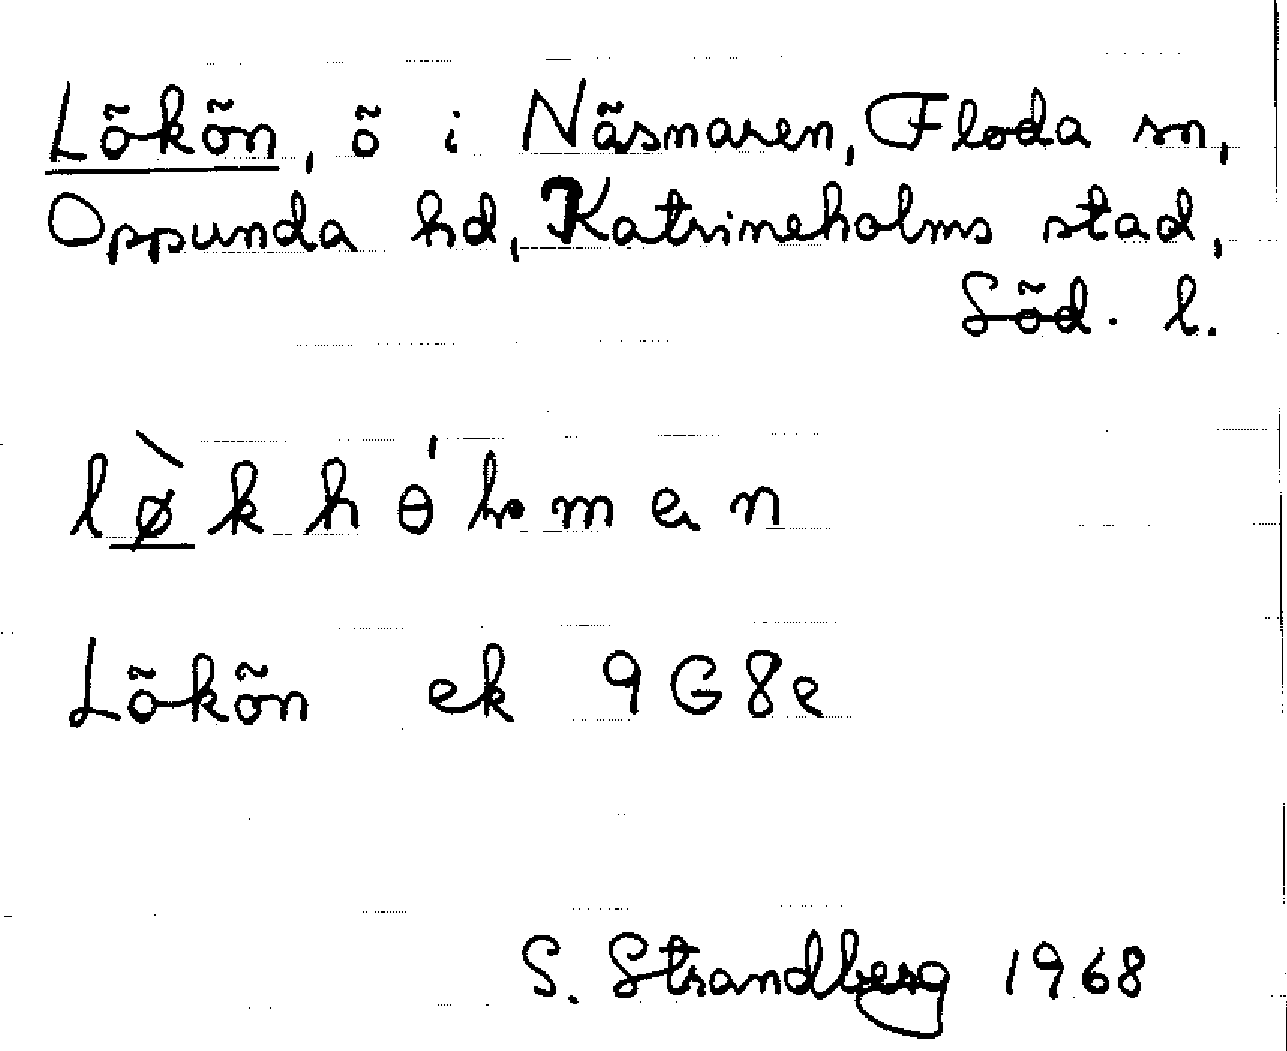 Lökön, ö i Näsnaren, Floda sn,
Oppunda hd, Katrineholms stad,
Söd. l.
lø̀khɵ́lmen
Lökön ek 9G8e
S. Strandberg 1968